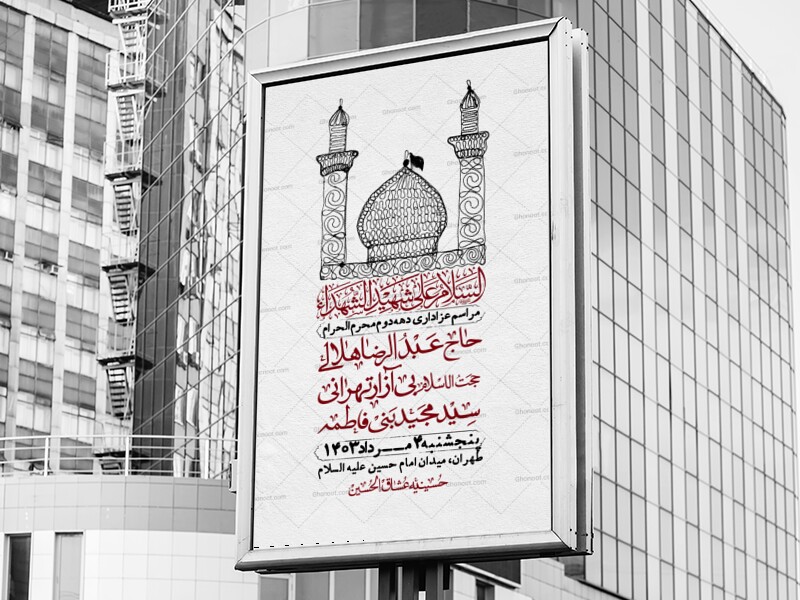 السلام علی شهید الشهدا
مراسم عزاداری دهه دوم محرم الحرام
حاج عبدالرضا هلالی
حجت الاسلام بی آزار تهرانی
سید مجید بنی فاطمه
پنجشنبه ۴ مرداد ۱۴۰۳
طهران، میدان امام حسین علیه السلام
حسینیه عشاق الحسین